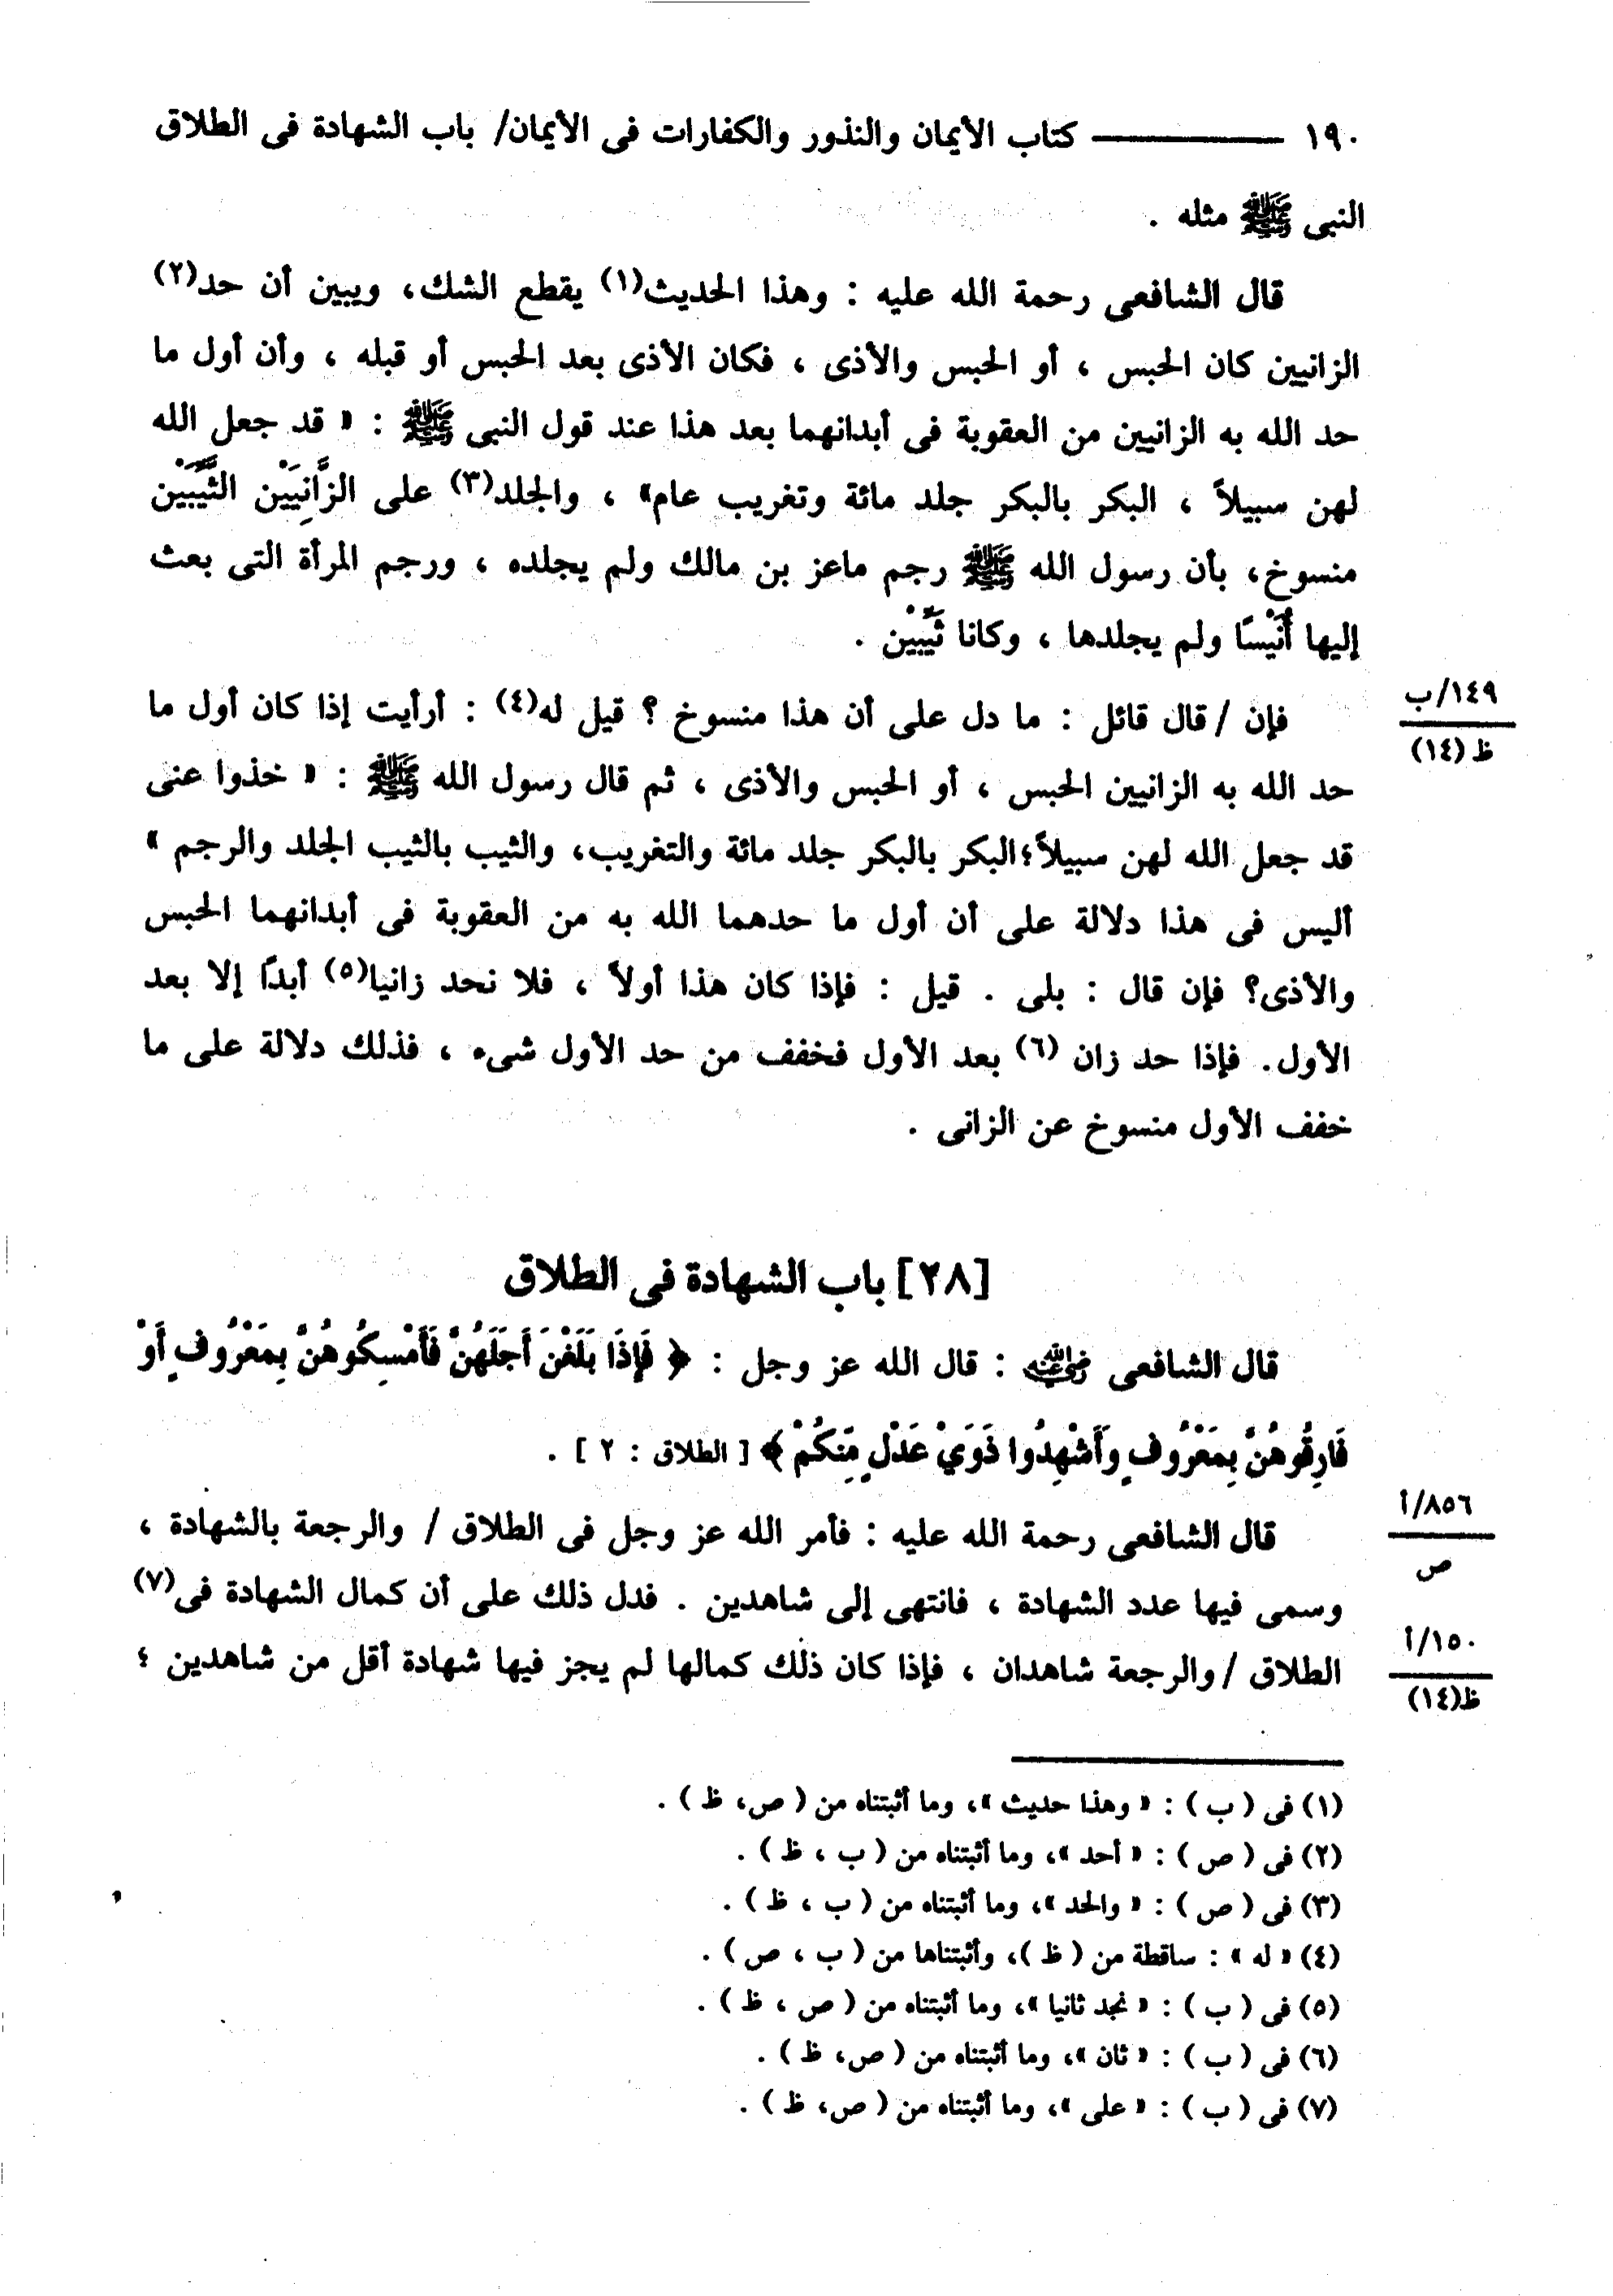 ١٩٠ ــــــــــ كتاب الأيمان والنذور والكفارات فى الأيمان/ باب الشهادة فى الطلاق
النبى ﷺ مثله .
قال الشافعى رحمة الله عليه : وهذا الحديث(١) يقطع الشك، ويبين أن حد(٢)
الزانيين كان الحبس ، أو الحبس والأذى ، فكان الأذى بعد الحبس أو قبله ، وأن أول ما
حد الله به الزانيين من العقوبة فى أبدانهما بعد هذا عند قول النبى ﷺ : « قد جعل الله
لهن سبيلاً ، البكر بالبكر جلد مائة وتغريب عام» ، والجلد(٣) على الزَّانِيَيْن الثَّيِّبَيْن
منسوخ، بأن رسول الله ﷺ رجم ماعز بن مالك ولم يجلده ، ورجم المرأة التى بعث
إليها أُنَيْسًا ولم يجلدها ، وكانا ثَيِّبَيْن .
فإن / قال قائل : ما دل على أن هذا منسوخ ؟ قيل له(٤) : أرأيت إذا كان أول ما
١٤٩/ب
ظ (١٤)
حد الله به الزانيين الحبس ، أو الحبس والأذى ، ثم قال رسول الله ﷺ : « خذوا عنى
قد جعل الله لهن سبيلاً؛البكر بالبكر جلد مائة والتغريب، والثيب بالثيب الجلد والرجم »
أليس فى هذا دلالة على أن أول ما حدهما الله به من العقوبة فى أبدانهما الحبس
والأذى؟ فإن قال : بلى . قيل : فإذا كان هذا أولاً ، فلا نحد زانيا(٥) أبدًا إلا بعد
الأول. فإذا حد زان (٦) بعد الأول فخفف من حد الأول شىء ، فذلك دلالة على ما
خفف الأول منسوخ عن الزانى .
[٢٨] باب الشهادة فى الطلاق
قال الشافعى رضي الله عنه : قال الله عز وجل : ﴿ فَإِذَا بَلَغْنَ أَجَلَهُنَّ فَأَمْسِكُوهُنَّ بِمَعْرُوفٍ أَوْ
فَارِقُوهُنَّ بِمَعْرُوفٍ وَأَشْهِدُوا ذَوَيْ عَدْلٍ مِّنكُمْ ﴾ [ الطلاق : ٢ ] .
قال الشافعى رحمة الله عليه : فأمر الله عز وجل فى الطلاق / والرجعة بالشهادة ،
٨٥٦/أ
ص
وسمى فيها عدد الشهادة ، فانتهى إلى شاهدين . فدل ذلك على أن كمال الشهادة فى(٧)
الطلاق / والرجعة شاهدان ، فإذا كان ذلك كمالها لم يجز فيها شهادة أقل من شاهدين ؛
١٥٠/أ
ظ(١٤)
(١) فى ( ب ) : « وهذا حديث »، وما أثبتناه من ( ص، ظ ) .
(٢) فى ( ص ) : « أحد »، وما أثبتناه من ( ب ، ظ ) .
(٣) فى ( ص ) : « والحد »، وما أثبتناه من ( ب ، ظ ) .
(٤) « له » : ساقطة من ( ظ )، وأثبتناها من ( ب ، ص ) .
(٥) فى ( ب ) : « نجد ثانيا »، وما أثبتناه من ( ص ، ظ ) .
(٦) فى ( ب ) : « ثان »، وما أثبتناه من ( ص، ظ ) .
(٧) فى ( ب ) : « على »، وما أثبتناه من ( ص، ظ ) .